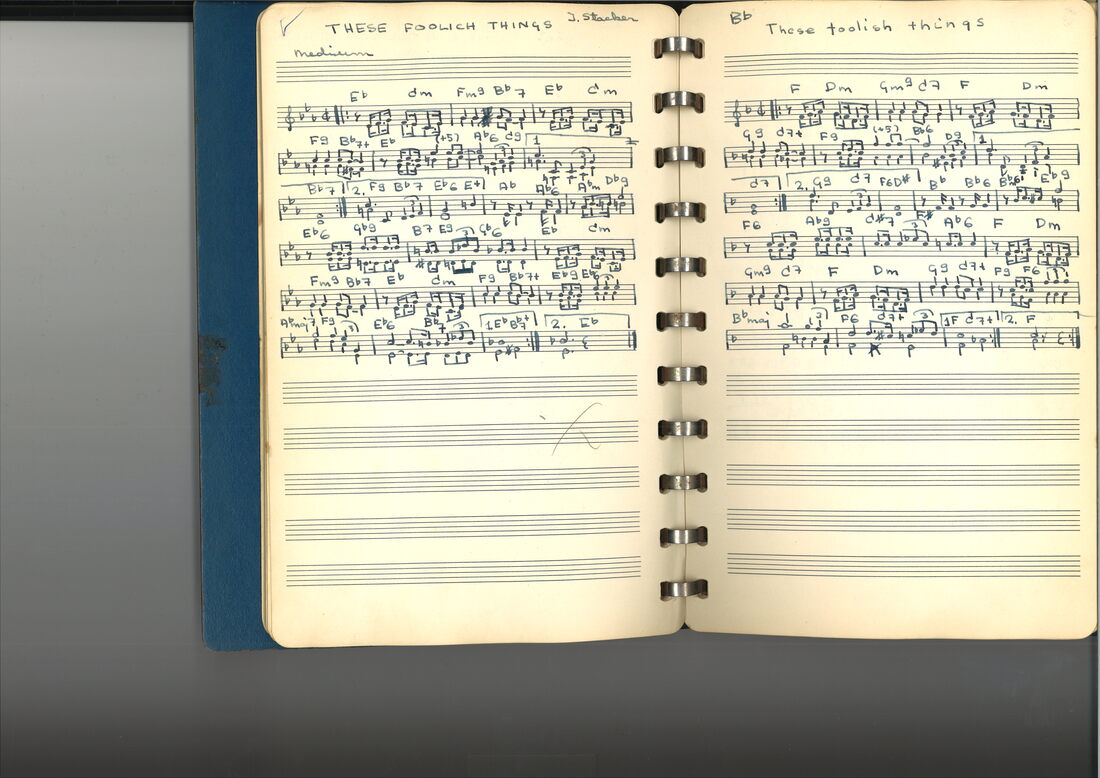 THESE FOOLICH THINGS J. Stacker
medium
Eb cm Fm9 Bb7 Eb cm
F9 Bb7+ Eb (+5) Ab6 d9 1
Bb7 2. F9 Bb7 Eb6 E+ Ab Ab6 Abm Db9
Eb6 Gb9 B7 E9 Gb6 Eb cm
Fm9 Bb7 Eb cm F9 Bb7+ Eb9 Eb6
Abmaj7 F9 3 Eb6 Bb7 3 1. Eb Bb7+ 2. Eb
Bb
These foolish things
F Dm Gm9 d7 F Dm
G9 d7+ F9 (+5) Bb6 D9 1.
d7 2. G9 d7 F6 D# Bb Bb6 Bbm6 Eb9
F6 Ab9 d#7 F# Ab6 F Dm
Gm9 d7 F Dm G9 d7+ F9 F6
Bbmaj 3 F6 d7+ 3 1F d7+ 2. F